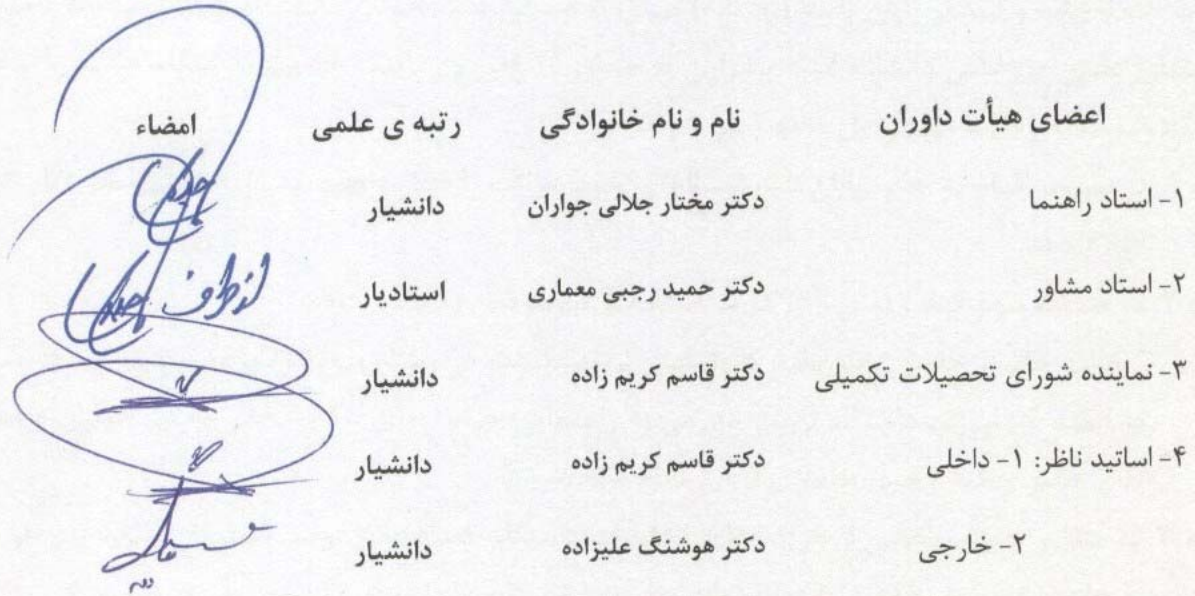 اعضای هیأت داوران نام و نام خانوادگی رتبه ی علمی امضاء
۱- استاد راهنما دکتر مختار جلالی جواران دانشیار
۲- استاد مشاور دکتر حمید رجبی معماری استادیار از طرف
۳- نماینده شورای تحصیلات تکمیلی دکتر قاسم کریم زاده دانشیار
۴- اساتید ناظر: ۱- داخلی دکتر قاسم کریم زاده دانشیار
۲- خارجی دکتر هوشنگ علیزاده دانشیار